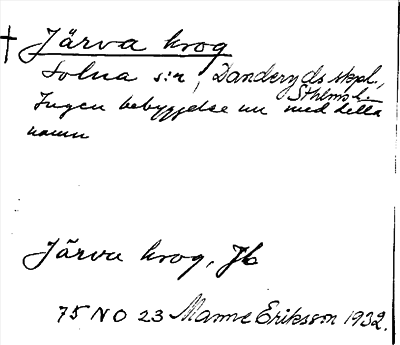 † Järva krog
Solna s:n, Danderyds skpl,
Sthlms l.
Ingen bebyggelse nu med detta
namn
Järva krog, Jb
75 NO 23 Manne Eriksson 1932.